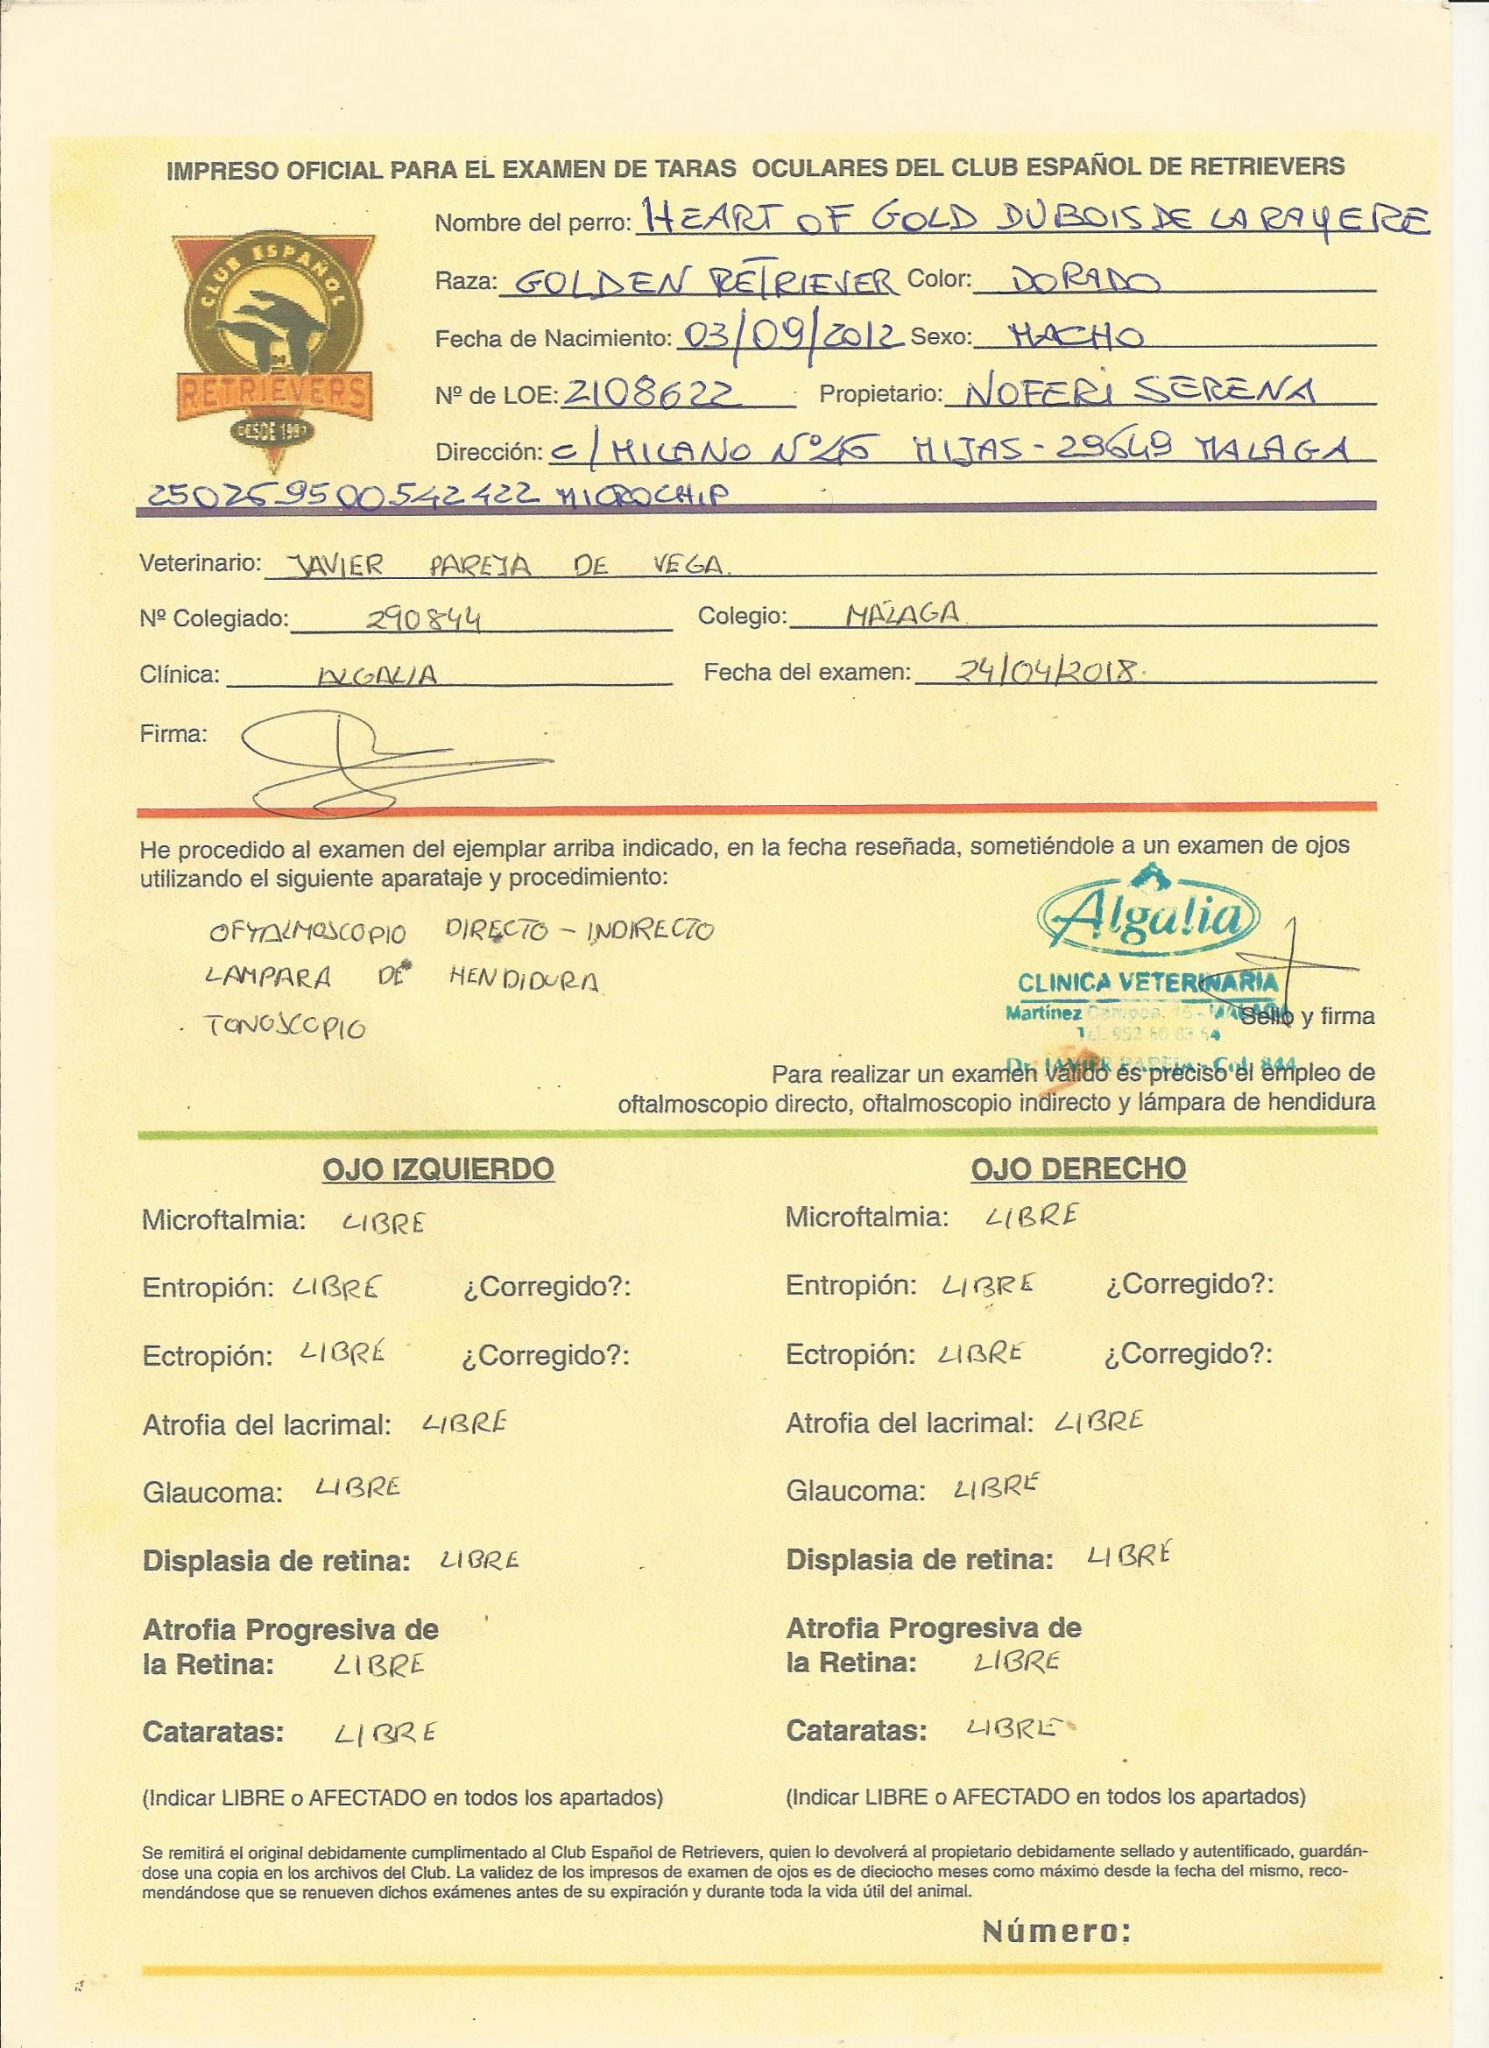 IMPRESO OFICIAL PARA EL EXAMEN DE TARAS OCULARES DEL CLUB ESPAÑOL DE RETRIEVERS
CLUB ESPAÑOL
RETRIEVERS
DESDE 1993
Nombre del perro: HEART OF GOLD DU BOIS DE LA RAYERE
Raza: GOLDEN RETRIEVER Color: DORADO
Fecha de Nacimiento: 03/09/2012 Sexo: MACHO
Nº de LOE: 2108622 Propietario: NOFERI SERENA
Dirección: C/ MILANO Nº 46 MIJAS - 29649 MALAGA
250269500542422 MICROCHIP
Veterinario: JAVIER PAREJA DE VEGA.
Nº Colegiado: 290844 Colegio: MÁLAGA
Clínica: ALGALIA Fecha del examen: 24/04/2018.
Firma:
He procedido al examen del ejemplar arriba indicado, en la fecha reseñada, sometiéndole a un examen de ojos
utilizando el siguiente aparataje y procedimiento:
OFTALMOSCOPIO DIRECTO - INDIRECTO
LAMPARA DE HENDIDURA
TONOSCOPIO
Algalia
CLINICA VETERINARIA
Martínez 15 - MALAGA
Tel. 952 60 03 54
Dr. JAVIER PAREJA - Col. 844
Sello y firma
Para realizar un examen válido es preciso el empleo de
oftalmoscopio directo, oftalmoscopio indirecto y lámpara de hendidura
OJO IZQUIERDO OJO DERECHO
Microftalmia: LIBRE Microftalmia: LIBRE
Entropión: LIBRE ¿Corregido?: Entropión: LIBRE ¿Corregido?:
Ectropión: LIBRE ¿Corregido?: Ectropión: LIBRE ¿Corregido?:
Atrofia del lacrimal: LIBRE Atrofia del lacrimal: LIBRE
Glaucoma: LIBRE Glaucoma: LIBRE
Displasia de retina: LIBRE Displasia de retina: LIBRE
Atrofia Progresiva de Atrofia Progresiva de
la Retina: LIBRE la Retina: LIBRE
Cataratas: LIBRE Cataratas: LIBRE
(Indicar LIBRE o AFECTADO en todos los apartados) (Indicar LIBRE o AFECTADO en todos los apartados)
Se remitirá el original debidamente cumplimentado al Club Español de Retrievers, quien lo devolverá al propietario debidamente sellado y autentificado, guardán-
dose una copia en los archivos del Club. La validez de los impresos de examen de ojos es de dieciocho meses como máximo desde la fecha del mismo, reco-
mendándose que se renueven dichos exámenes antes de su expiración y durante toda la vida útil del animal.
Número: